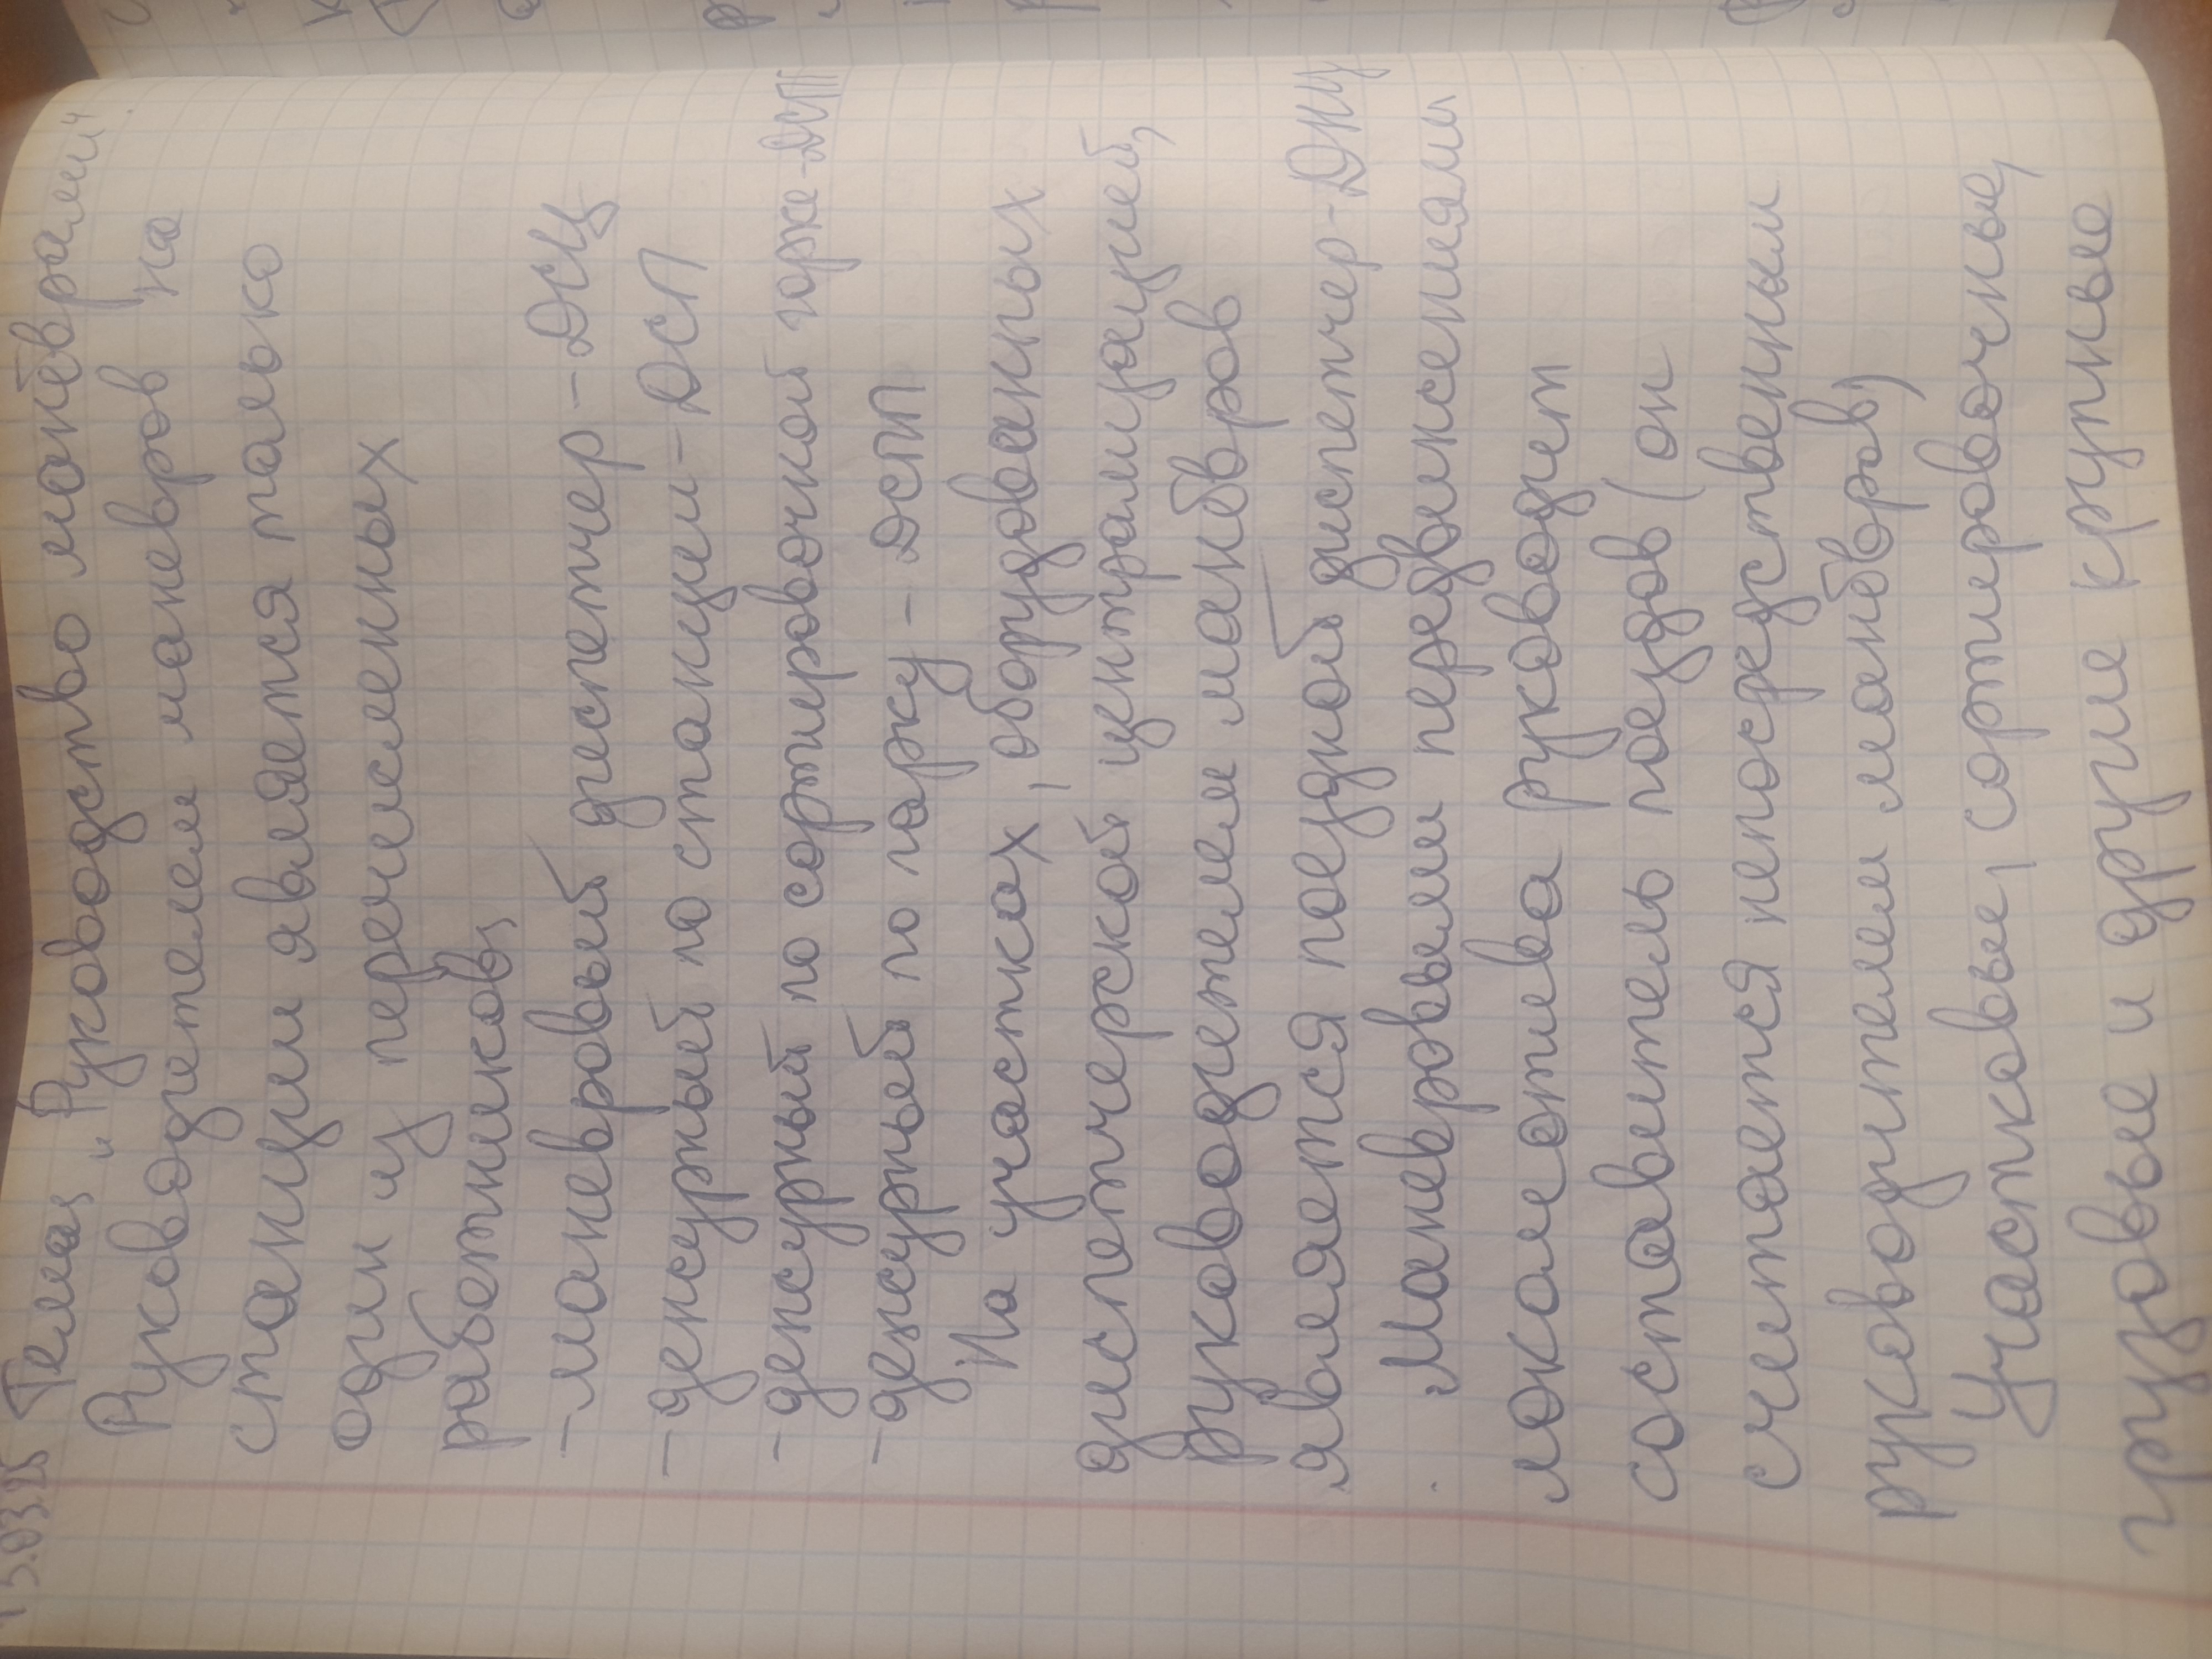 13.03.25 Тема: "Руководство манёврами"
Руководителем маневров на
станции является только
один из перечисленных
работников:
-маневровый диспетчер-ДСЦ
-дежурный по станции-ДСП
-дежурный по сортировочной горке-ДСПГ
-дежурный по парку-ДСПП
На участках, оборудованных
диспетчерской централизацией,
руководителем манёвров
является поездной диспетчер-ДНЦ
Маневровыми передвижениями
локомотива руководит
составитель поездов (он
считается непосредственным
руководителем манёвров)
Участковые, сортировочные,
грузовые и другие крупные